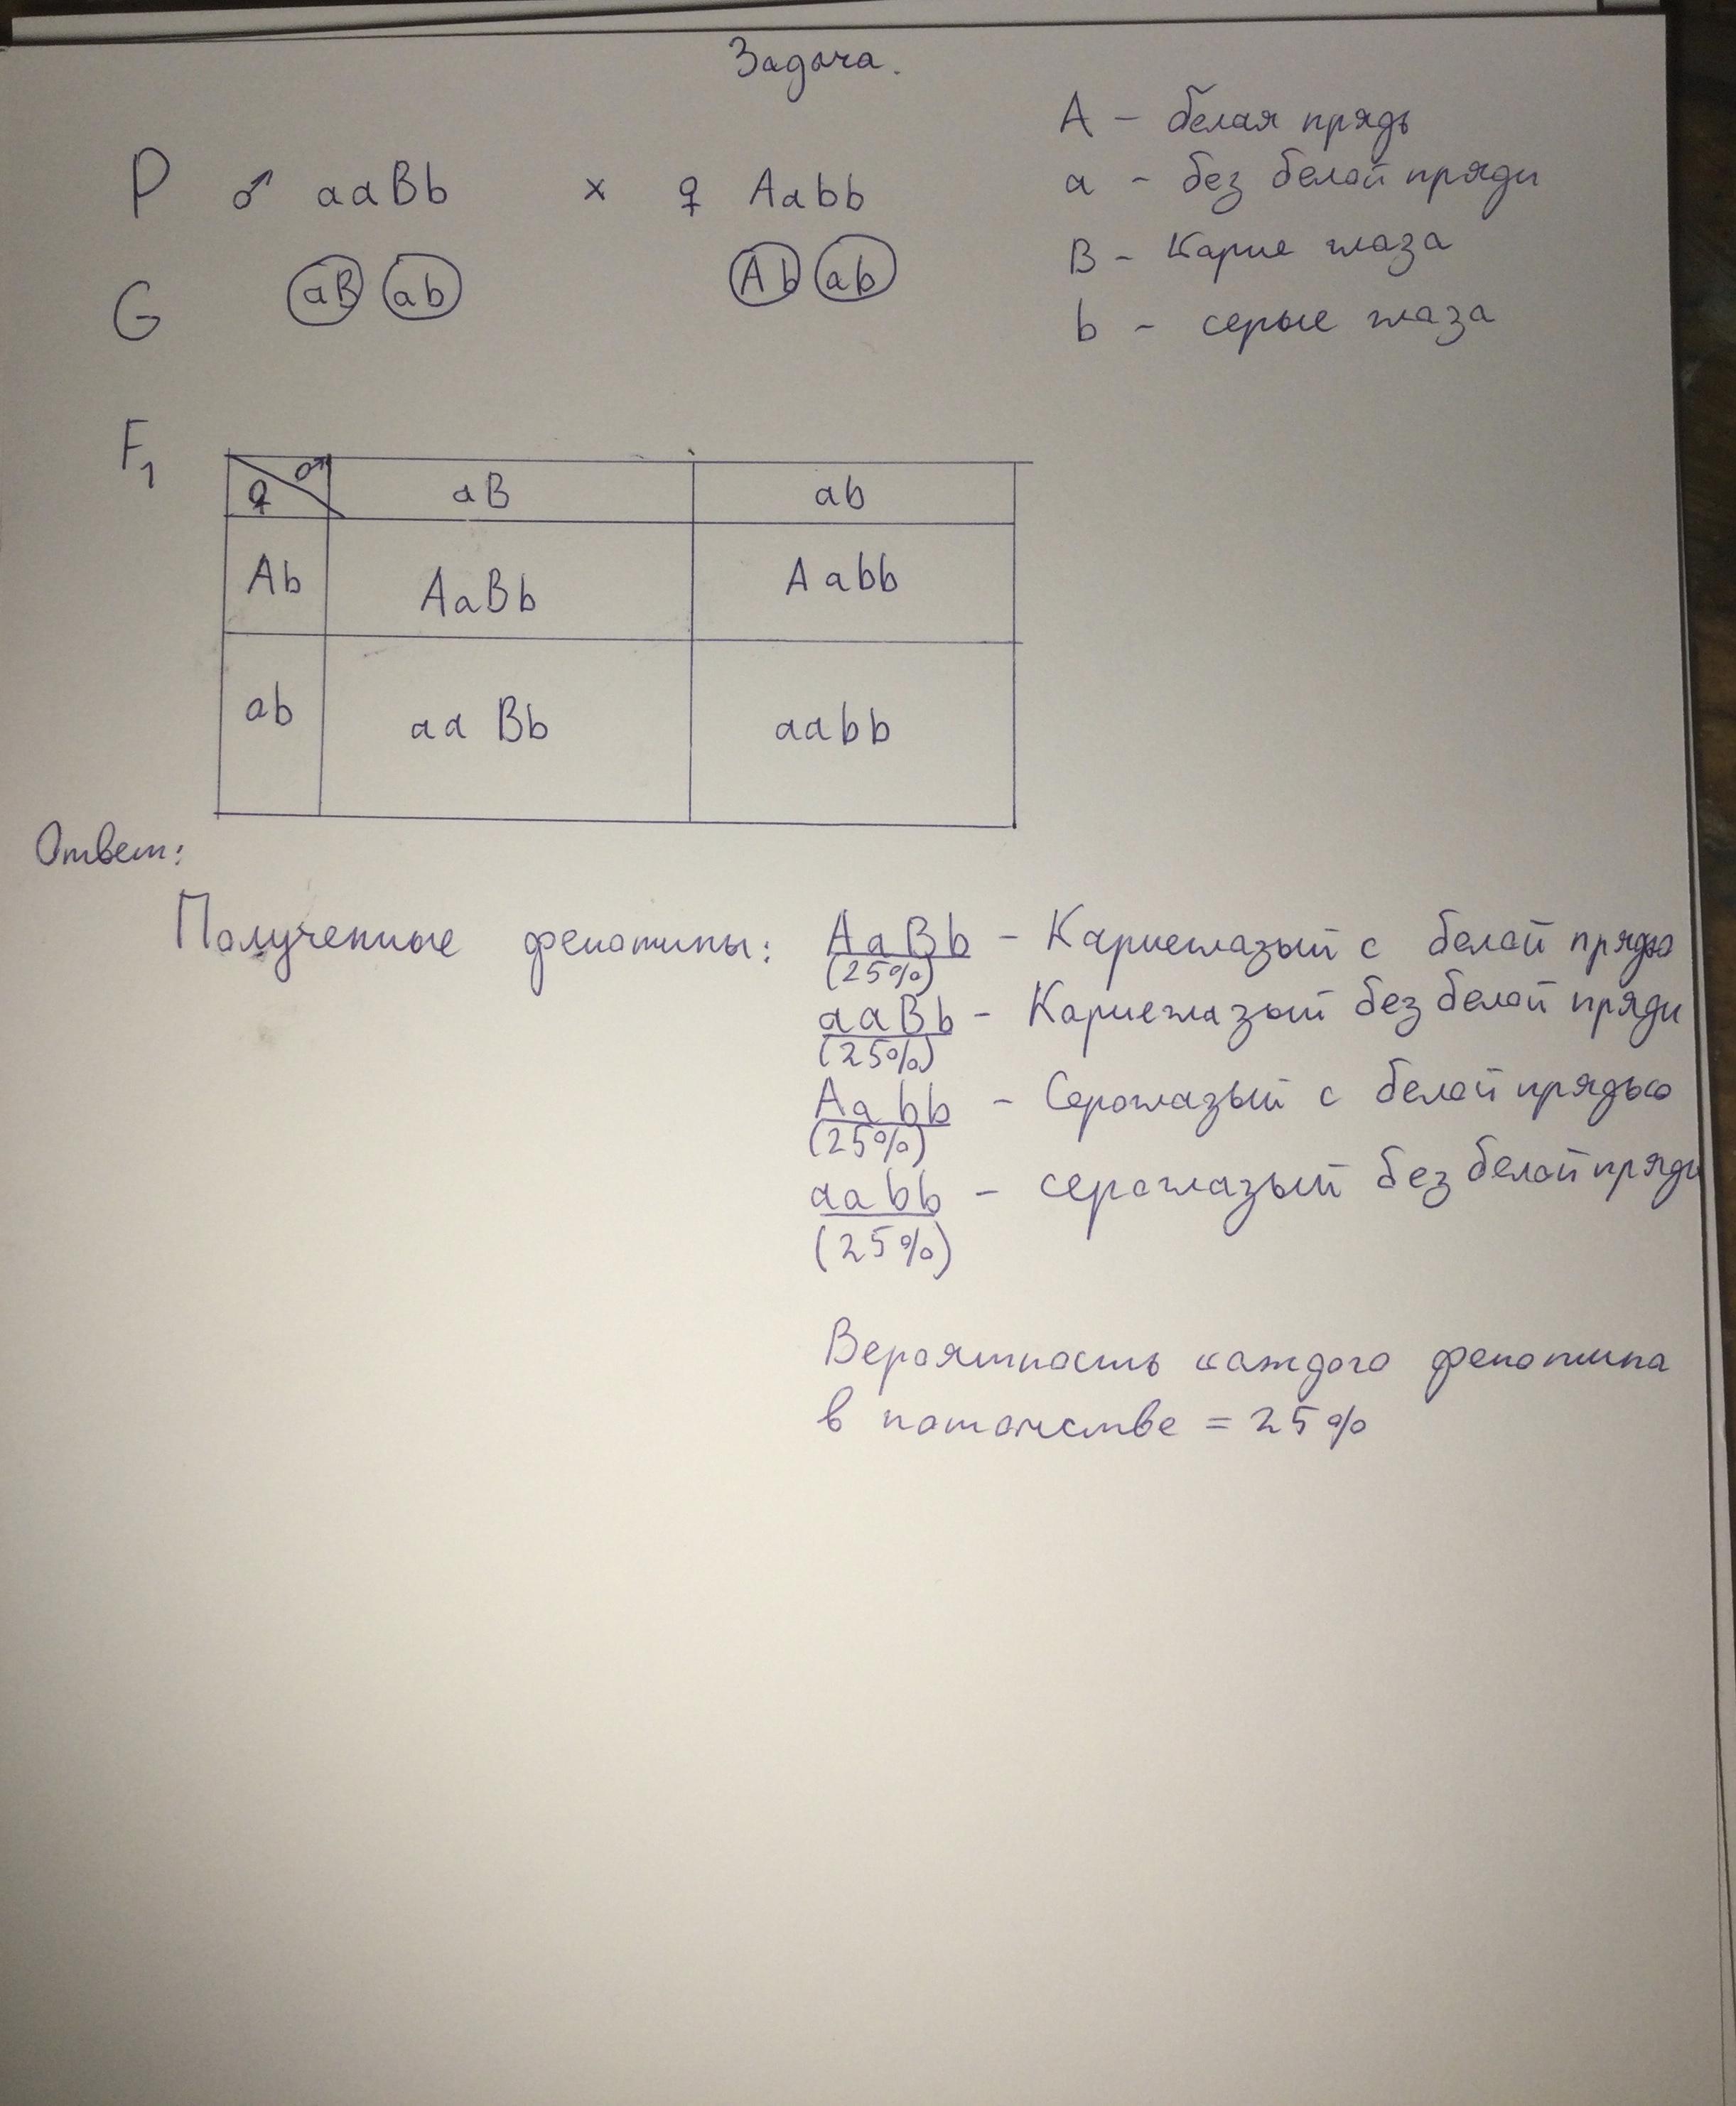 Задача.
A - белая прядь
P ♂ aaBb x ♀ Aabb
a - без белой пряди
B - Карие глаза
G aB ab Ab ab
b - серые глаза
F1
♀ ♂ aB ab
Ab AaBb Aabb
ab aa Bb aabb
Ответ:
Полученные фенотипы: AaBb - Кариеглазый с белой прядью
(25%)
aaBb - Кариеглазый без белой пряди
(25%)
Aa bb - Сероглазый с белой прядью
(25%)
aabb - сероглазый без белой пряди
(25%)
Вероятность каждого фенотипа
в потомстве = 25%